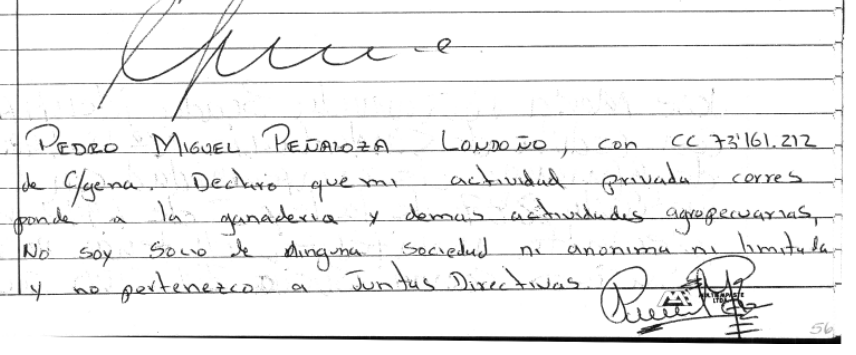 PEDRO MIGUEL PEÑALOZA LONDOÑO, con CC 73'161.212
de C/gena. Declaro que mi actividad privada corres
ponde a la ganaderia y demas actividades agropecuarias,
No soy socio de ninguna sociedad ni anonima ni limitada
y no pertenezco a Juntas Directivas
LTDA
56